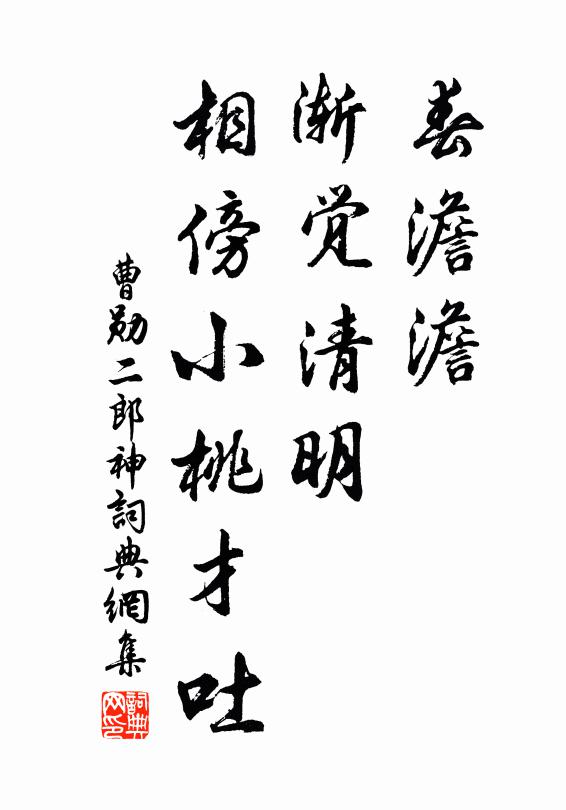 春澹澹
渐觉清明
相傍小桃才吐
曹勋二郎神詞典網集
詞典
网印